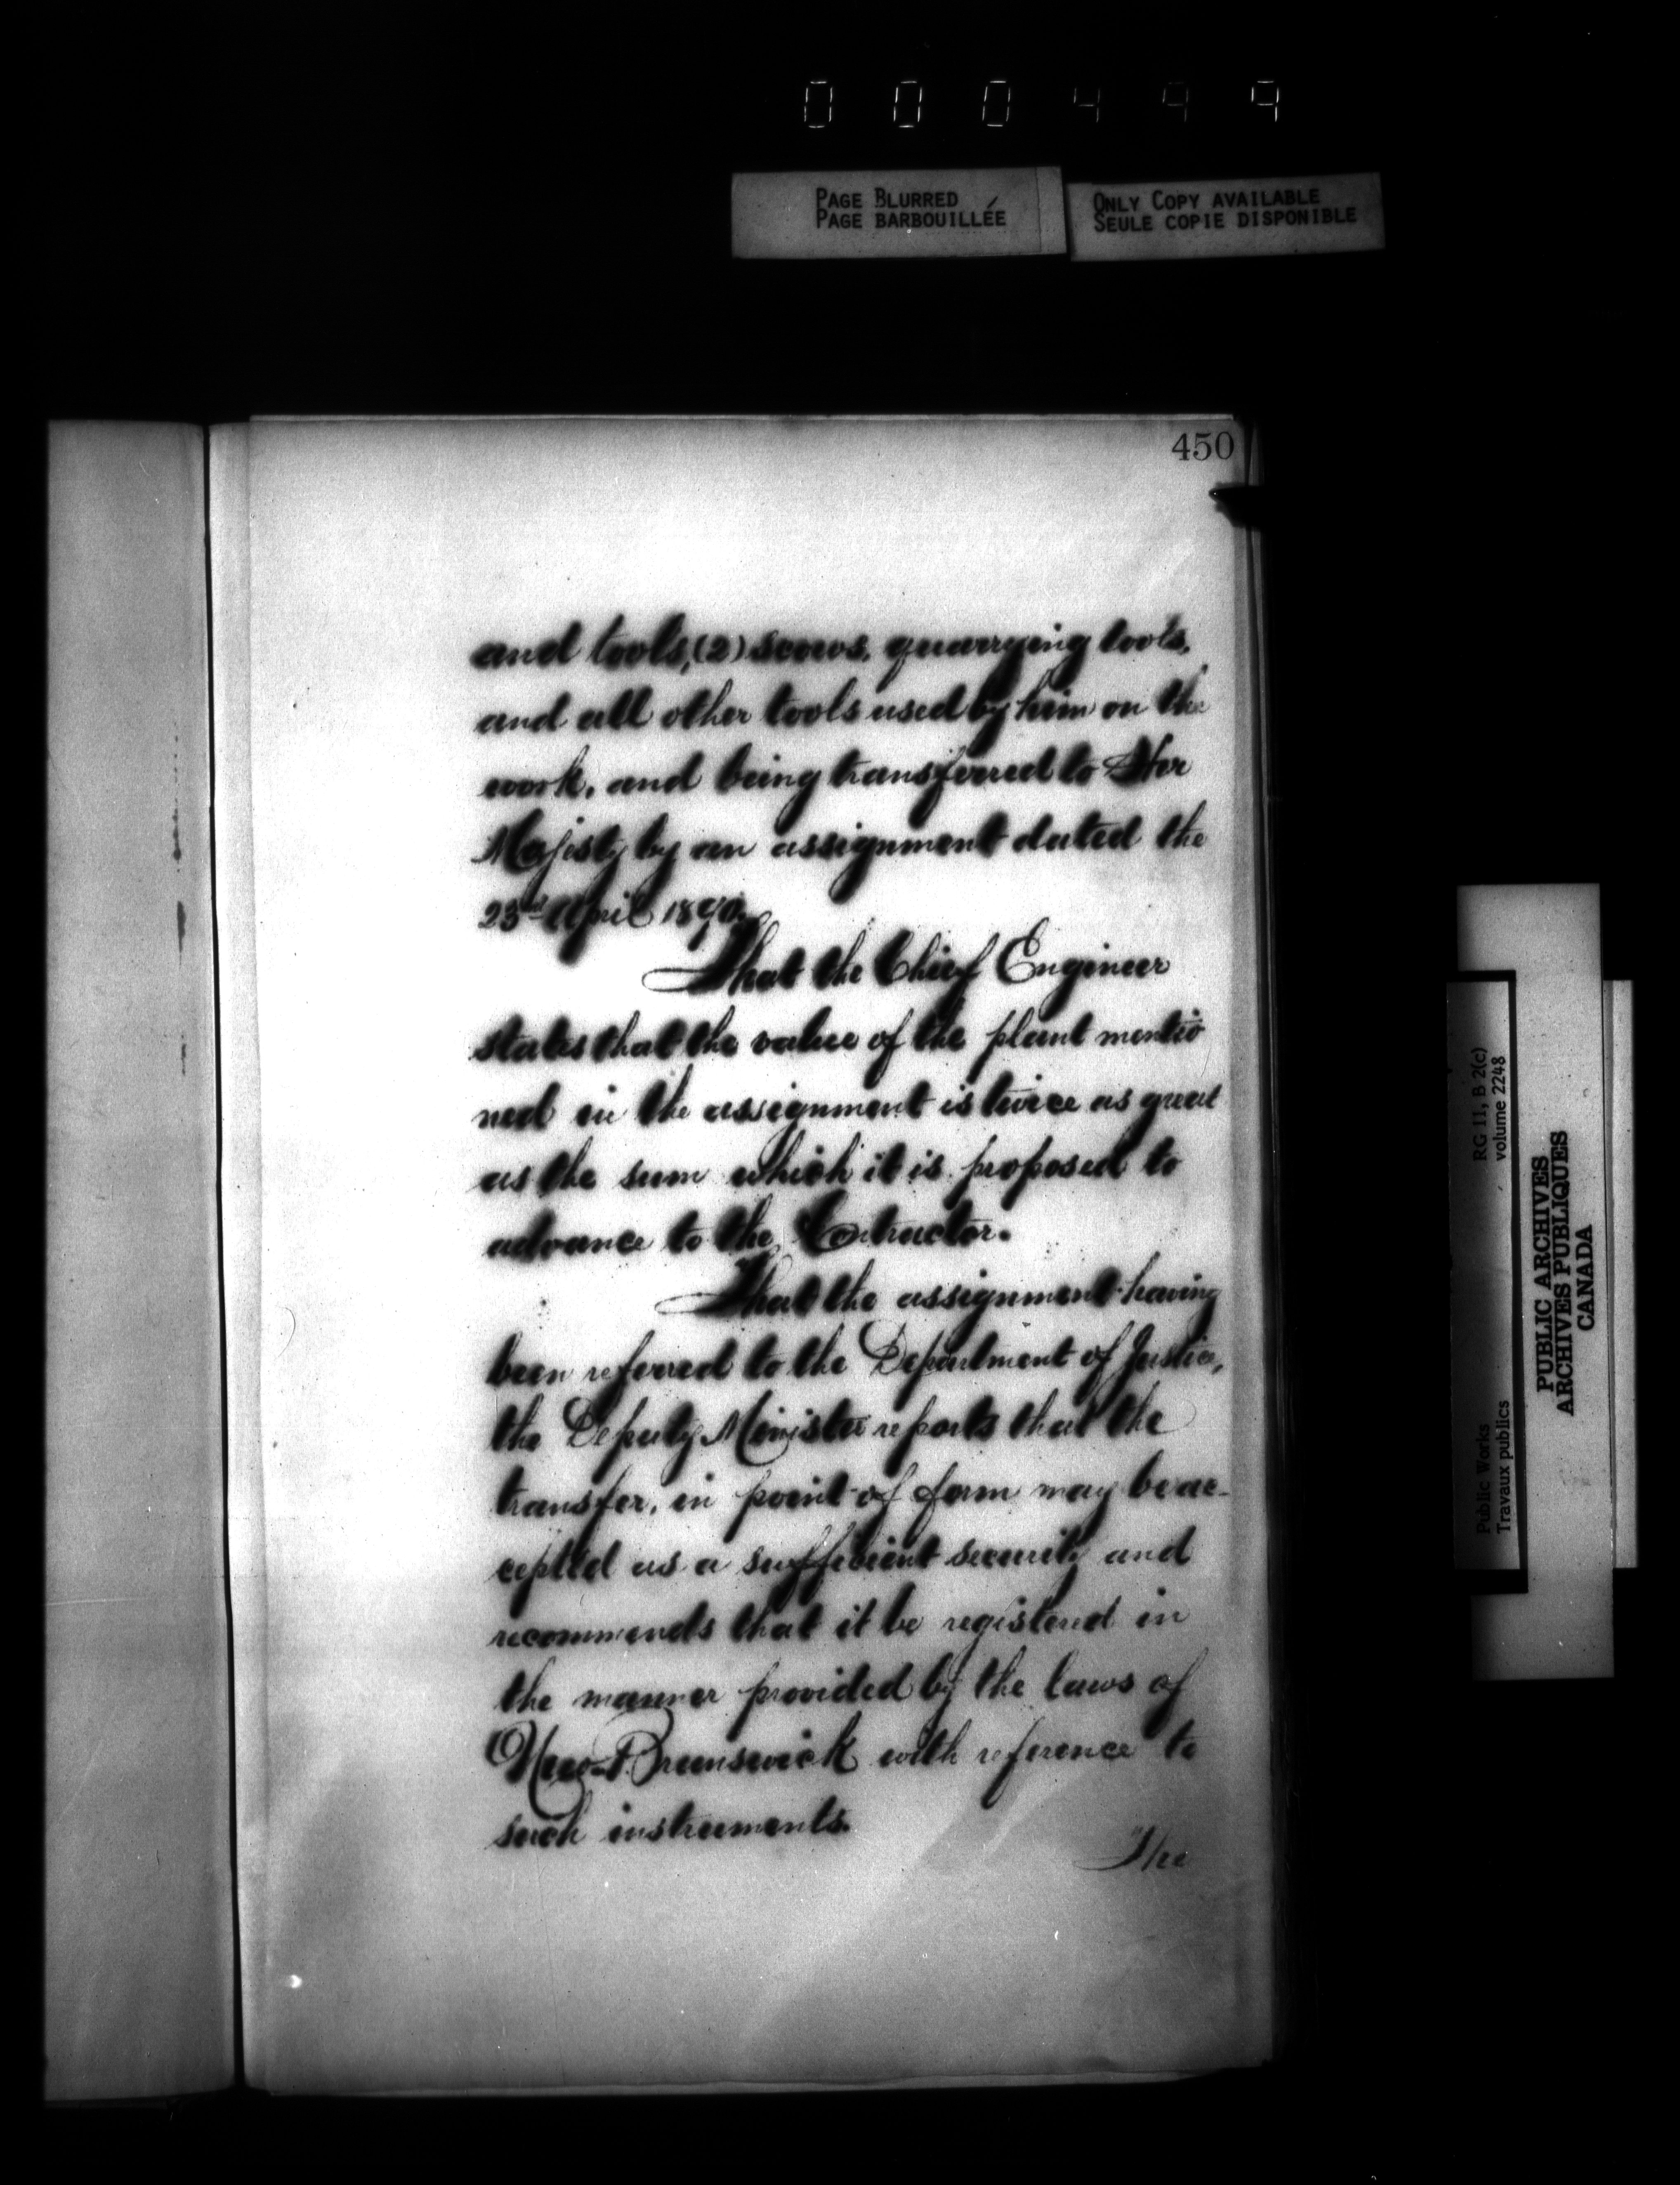 000499
PAGE BLURRED
PAGE BARBOUILLÉE
ONLY COPY AVAILABLE
SEULE COPIE DISPONIBLE
450
and tools, (2) scows, quarrying tools,
and all other tools used by him on the
work, and being transferred to Her
Majesty by an assignment dated the
23rd April 1890.
That the Chief Engineer
states that the value of the plant mentio
ned in the assignment is twice as great
as the sum which it is proposed to
advance to the Contractor.
That the assignment having
been referred to the Department of Justice,
the Deputy Minister reports that the
transfer, in point of form may be ac-
cepted as a sufficient security and
recommends that it be registered in
the manner provided by the laws of
New-Brunswick with reference to
such instruments.
The
RG 11, B 2(c)
volume 2248
Public Works
Travaux publics
PUBLIC ARCHIVES
ARCHIVES PUBLIQUES
CANADA